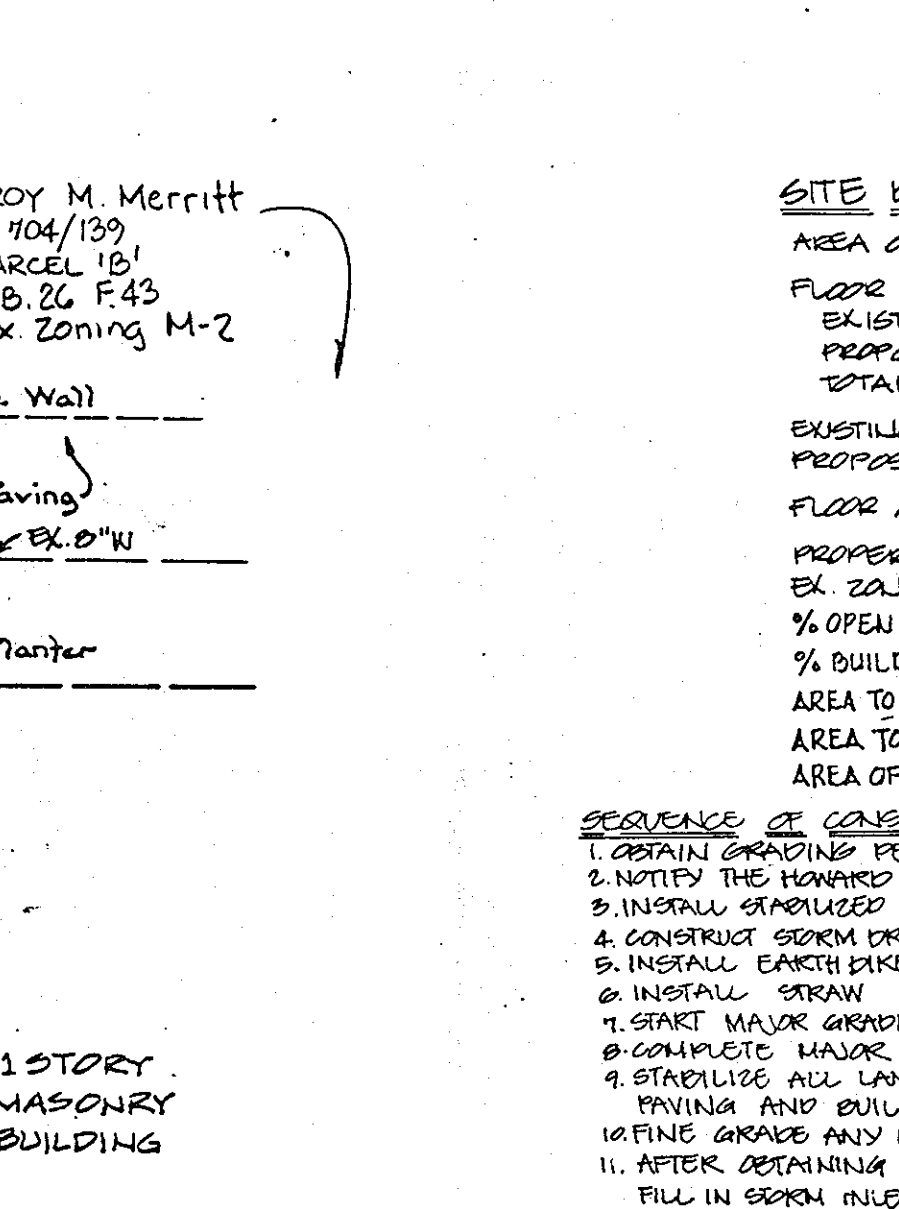 ROY M. Merritt
704/139
ARCEL 'B'
B.26 F.43
x. Zoning M-2
Wall
aving
EX. 8"W
lanter
1 STORY
MASONRY
BUILDING
SITE
AREA O
FLOOR
EXIST
PROPO
TOTAL
EXISTIN
PROPOS
FLOOR A
PROPER
EX. ZON
% OPEN
% BUILD
AREA TO
AREA TO
AREA OF
SEQUENCE OF CONS
1. OBTAIN GRADING PE
2. NOTIFY THE HOWARD
3. INSTALL STABILIZED
4. CONSTRUCT STORM DR
5. INSTALL EARTH DIKE
6. INSTALL STRAW
7. START MAJOR GRADI
8. COMPLETE MAJOR
9. STABILIZE ALL LAN
PAVING AND BUIL
10. FINE GRADE ANY
11. AFTER OBTAINING
FILL IN STORM INLE